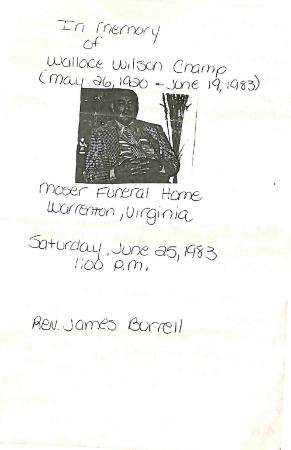 In memory
of
Wallace Wilson Champ
(May 26, 1920 - June 19, 1983)
Moser Funeral Home
Warrenton, Virginia
Saturday, June 25, 1983
1:00 p.m.
Rev. James Burrell